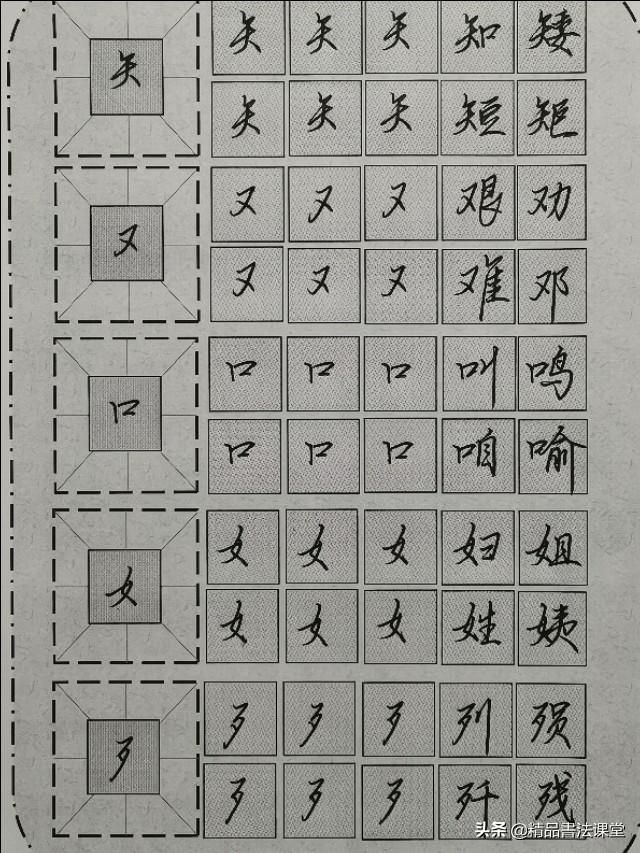 矢
矢 矢 矢 知 矮
矢 矢 矢 短 矩
又
又 又 又 艰 劝
又 又 又 难 邓
口
口 口 口 叫 鸣
口 口 口 咱 喻
女
女 女 女 妇 姐
女 女 女 姓 姨
歹
歹 歹 歹 列 殒
歹 歹 歹 歼 残
头条 @精品書法课堂